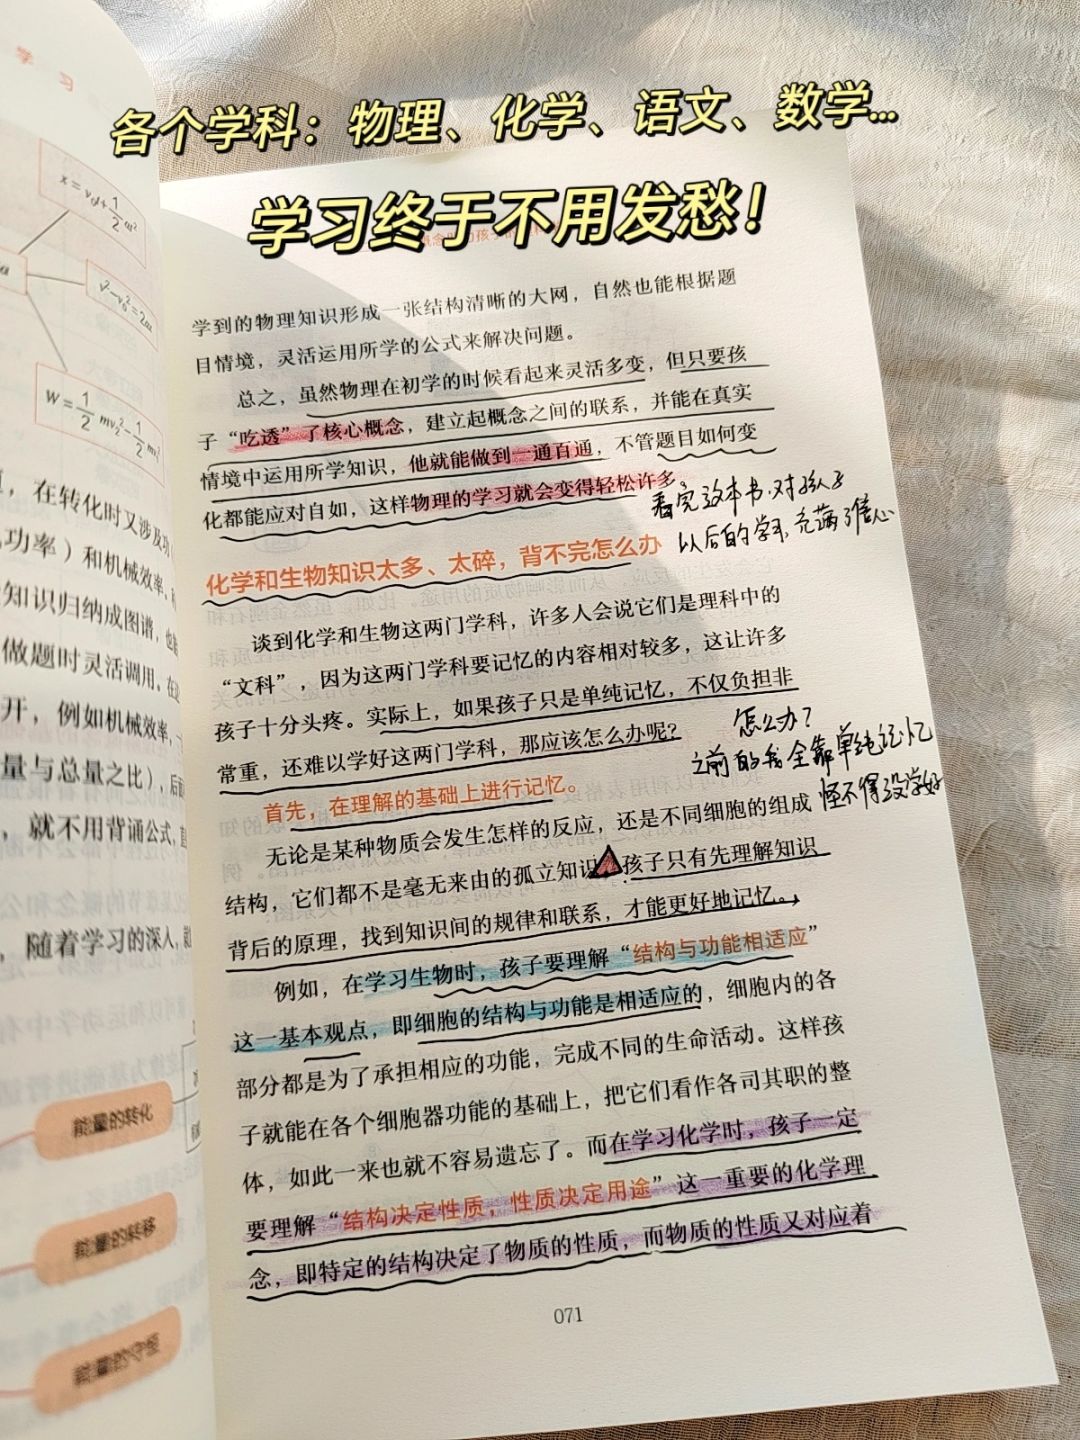 各个学科：物理、化学、语文、数学...
学习终于不用发愁！
学习
x=v₀t+1/2at²
v²-v₀²=2ax
w=1/2mv₂²-1/2mv₁²
，在转化时又涉及功
功率）和机械效率，
知识归纳成图谱，也
做题时灵活调用。在
开，例如机械效率，
量与总量之比），后
，就不用背诵公式，直
，随着学习的深入，
能量的转化
能量的转移
学到的物理知识形成一张结构清晰的大网，自然也能根据题
目情境，灵活运用所学的公式来解决问题。
总之，虽然物理在初学的时候看起来灵活多变，但只要孩
子“吃透”了核心概念，建立起概念之间的联系，并能在真实
情境中运用所学知识，他就能做到一通百通，不管题目如何变
化都能应对自如，这样物理的学习就会变得轻松许多
看完这本书，对孩子
以后的学习充满了信心
化学和生物知识太多、太碎，背不完怎么办
谈到化学和生物这两门学科，许多人会说它们是理科中的
“文科”，因为这两门学科要记忆的内容相对较多，这让许多
孩子十分头疼。实际上，如果孩子只是单纯记忆，不仅负担非
常重，还难以学好这两门学科，那应该怎么办呢？
怎么办？
之前的我全靠单纯记忆
怪不得没学好
首先，在理解的基础上进行记忆。
无论是某种物质会发生怎样的反应，还是不同细胞的组成
结构，它们都不是毫无来由的孤立知识，孩子只有先理解知识
背后的原理，找到知识间的规律和联系，才能更好地记忆。
例如，在学习生物时，孩子要理解“结构与功能相适应”
这一基本观点，即细胞的结构与功能是相适应的，细胞内的各
部分都是为了承担相应的功能，完成不同的生命活动。这样孩
子就能在各个细胞器功能的基础上，把它们看作各司其职的整
体，如此一来也就不容易遗忘了。而在学习化学时，孩子一定
要理解“结构决定性质，性质决定用途”这一重要的化学理
念，即特定的结构决定了物质的性质，而物质的性质又对应着
071